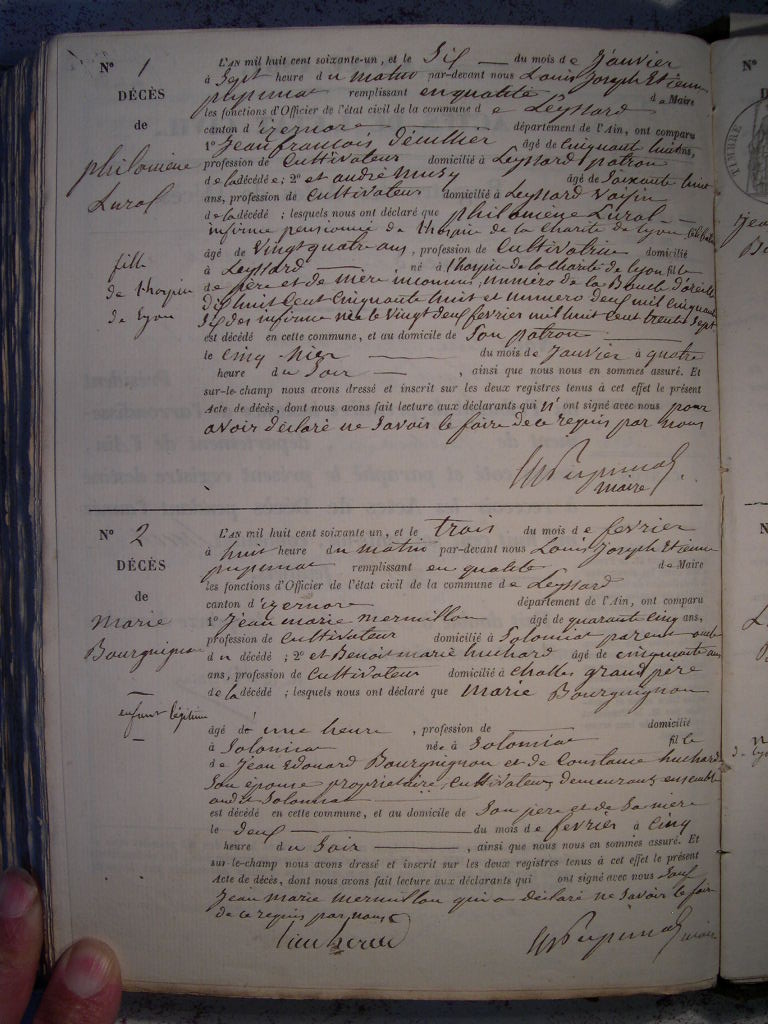 N° 1
DÉCÈS
de
philomène
Lural
fille
de l'hospice
de Lyon
L'AN mil huit cent soixante-un, et le Six du mois de Janvier
à Sept heure du matin par-devant nous Louis Joseph Etienne
remplissant en qualité de Maire
les fonctions d'Officier de l'état civil de la commune de Leyssard
canton d'izernore département de l'Ain, ont comparu
1° Jean françois âgé de Cinquante huit ans,
profession de Cultivateur domicilié à Leyssard patron
de la décédée; 2° et andré musy âgé de Soixante huit
ans, profession de Cultivateur domicilié à Leyssard Voisin
de la décédé; lesquels nous ont déclaré que philomène Lural
infirme pensionnée de l'hospice de la Charité de Lyon Célibataire
âgé de Vingt quatre ans, profession de Cultivatrice domicilié
à Leyssard né à l'hospice de la charité de Lyon fille
de père et de mère inconnus, numéro de la Boucle d'oreille
Dix huit Cent Cinquante huit et numéro deux mil Cinquante
Six des infirme née le Vingt Deux février mil huit Cent trente Sept
est décédé en cette commune, et au domicile de Son patron
le Cinq hier du mois de Janvier à quatre
heure du Soir, ainsi que nous nous en sommes assuré. Et
sur-le-champ nous avons dressé et inscrit sur les deux registres tenus à cet effet le présent
Acte de décès, dont nous avons fait lecture aux déclarants qui n'ont signé avec nous pour
avoir déclaré ne Savoir le faire de ce requis par nous
Maire
N° 2
DÉCÈS
de
Marie
Bourguignon
enfant légitime
L'AN mil huit cent soixante un, et le trois du mois de février
à huit heure du matin par-devant nous Louis Joseph Etienne
remplissant en qualité de Maire
les fonctions d'Officier de l'état civil de la commune de Leyssard
canton d'izernore département de l'Ain, ont comparu
1° Jean marie mermillon âgé de quarante Cinq ans,
profession de Cultivateur domicilié à Solomiat parent oncle
du décédé; 2° et Benoit marie huchard âgé de cinquante ans
ans, profession de Cultivateur domicilié à Challes grand père
de la décédé; lesquels nous ont déclaré que Marie Bourguignon
âgé de une heure, profession de domicilié
à Solomiat née à Solomiat fille
de Jean Edouard Bourguignon et de Constance huchard
Son épouse propriétaire, Cultivateurs demeurant ensemble
audit Solomiat
est décédé en cette commune, et au domicile de Son père et de Sa mère
le Deux du mois de février à Cinq
heure du Soir, ainsi que nous nous en sommes assuré. Et
sur-le-champ nous avons dressé et inscrit sur les deux registres tenus à cet effet le présent
Acte de décès, dont nous avons fait lecture aux déclarants qui ont signé avec nous Sauf
Jean marie mermillon qui a déclaré ne Savoir le faire
de ce requis par nous
maire
N°
TIMBRE